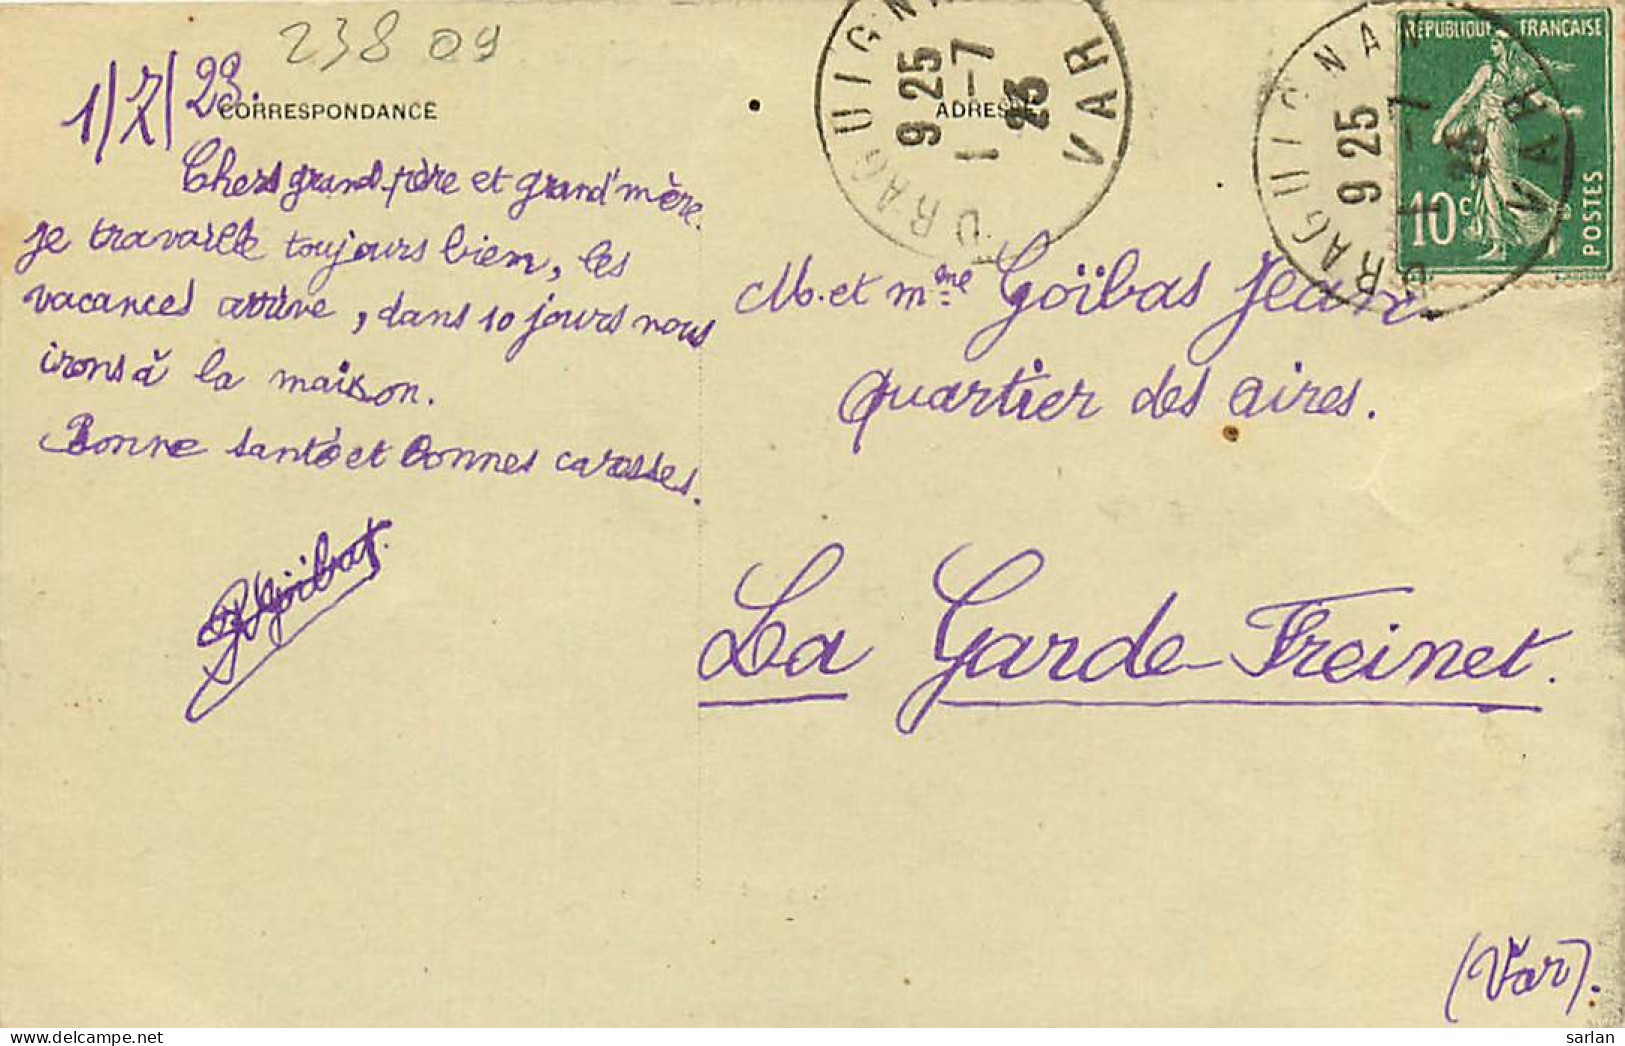 238 09
1/7/23.
CORRESPONDANCE
Chers grand-père et grand'mère.
je travaille toujours bien, les
vacances arrive, dans 10 jours nous
irons à la maison.
Bonne santé et bonnes carasses.
Goïbas.
ADRESSE
DRAGUIGNAN
9 25
1 -7
23
VAR
DRAGUIGNAN
9 25
1 -7
23
VAR
RÉPUBLIQUE FRANÇAISE
10c
POSTES
M. et mme Goïbas Jean
quartier des aires.
La Garde-Freinet.
(Var).
sarlan